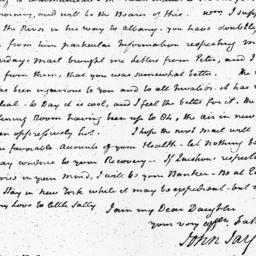 morning, and will be the Bearer of this.
the River in his way to albany. you have doubtless
from him particular Information respecting m
day's mail brought me Letters from Peter, and I
from them, that you was somewhat better. The
has been injurious to you and to all Invalids. it has
deal. To Day it is cool, and I feel the better for it. the
Room having been up to 86, the air in new
oppressively hot. I hope the next mail will
favorable Accounts of your Health. let nothing be
may conduce to your Recovery. If Questions respecting
in your mind, I will be your Banker. Be at Ease
Stay in New York while it may be expedient. but
my love to little Sally
I am my Dear Daughter
your very affte. Father
John Jay